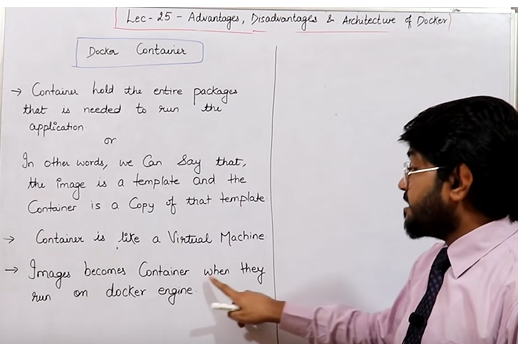 Lec-25 - Advantages, Disadvantages & Architecture of Docker
Docker Container
→ Container hold the entire packages
that is needed to run the
application
or
In other words, we Can Say that,
the image is a template and the
Container is a Copy of that template
→ Container is like a Virtual Machine
→ Images becomes Container when they
run on docker engine